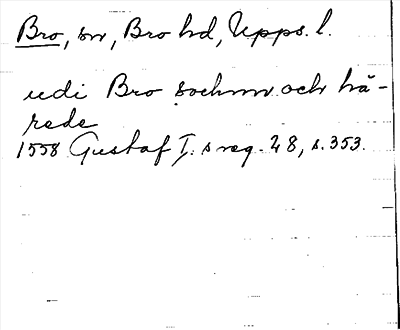 Bro, sn, Bro hd, Upps. l.
udi Bro sochnn och hä-
rede
1558 Gustaf I:s reg. 28, s. 353.